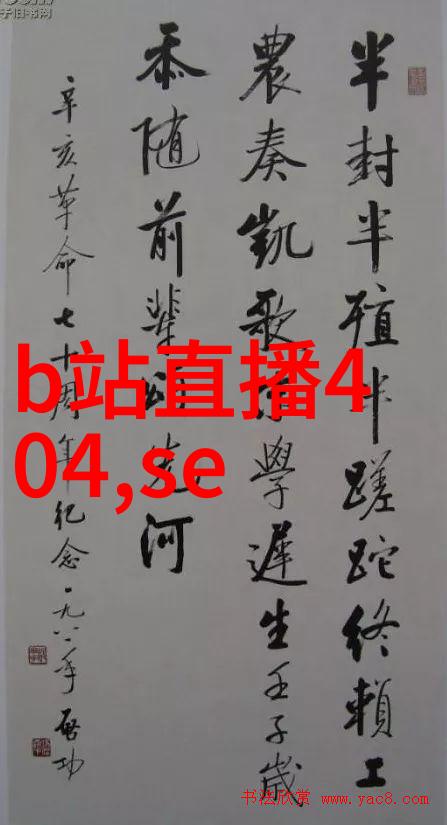 子旧书网
半封半殖半蹉跎終賴工
農奏凱歌學遲生壬子歲
忝随前輩先河
辛亥革命七十周年纪念一九八一年启功
b站直播4
04,se
书法欣赏 www.yac8.com